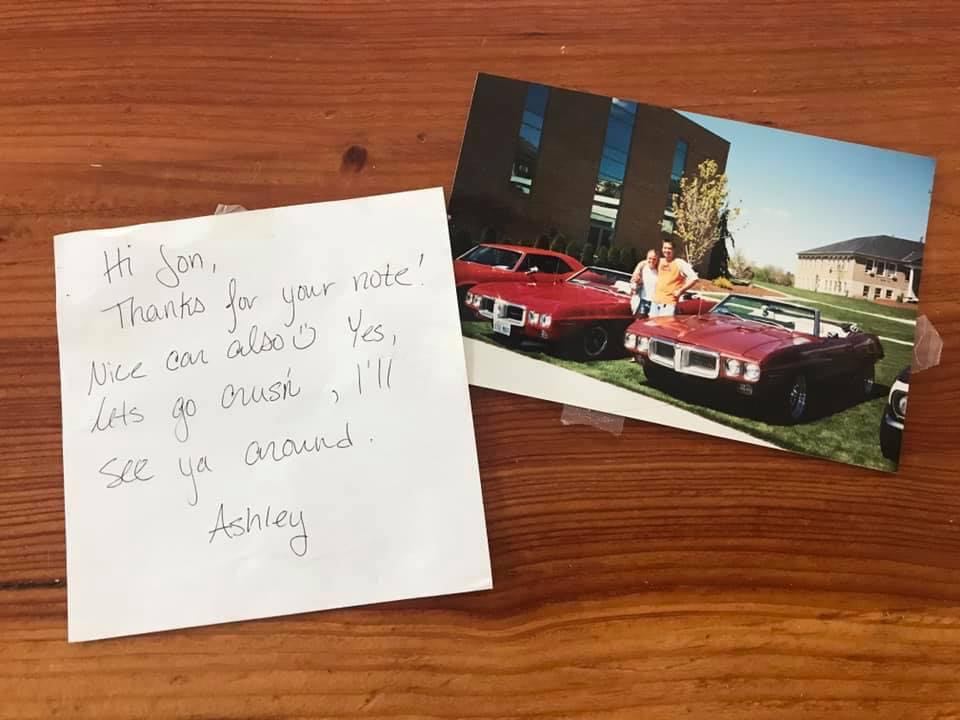 Hi Jon,
Thanks for your note!
Nice car also☺ Yes,
lets go crusin', I'll
see ya around.
Ashley